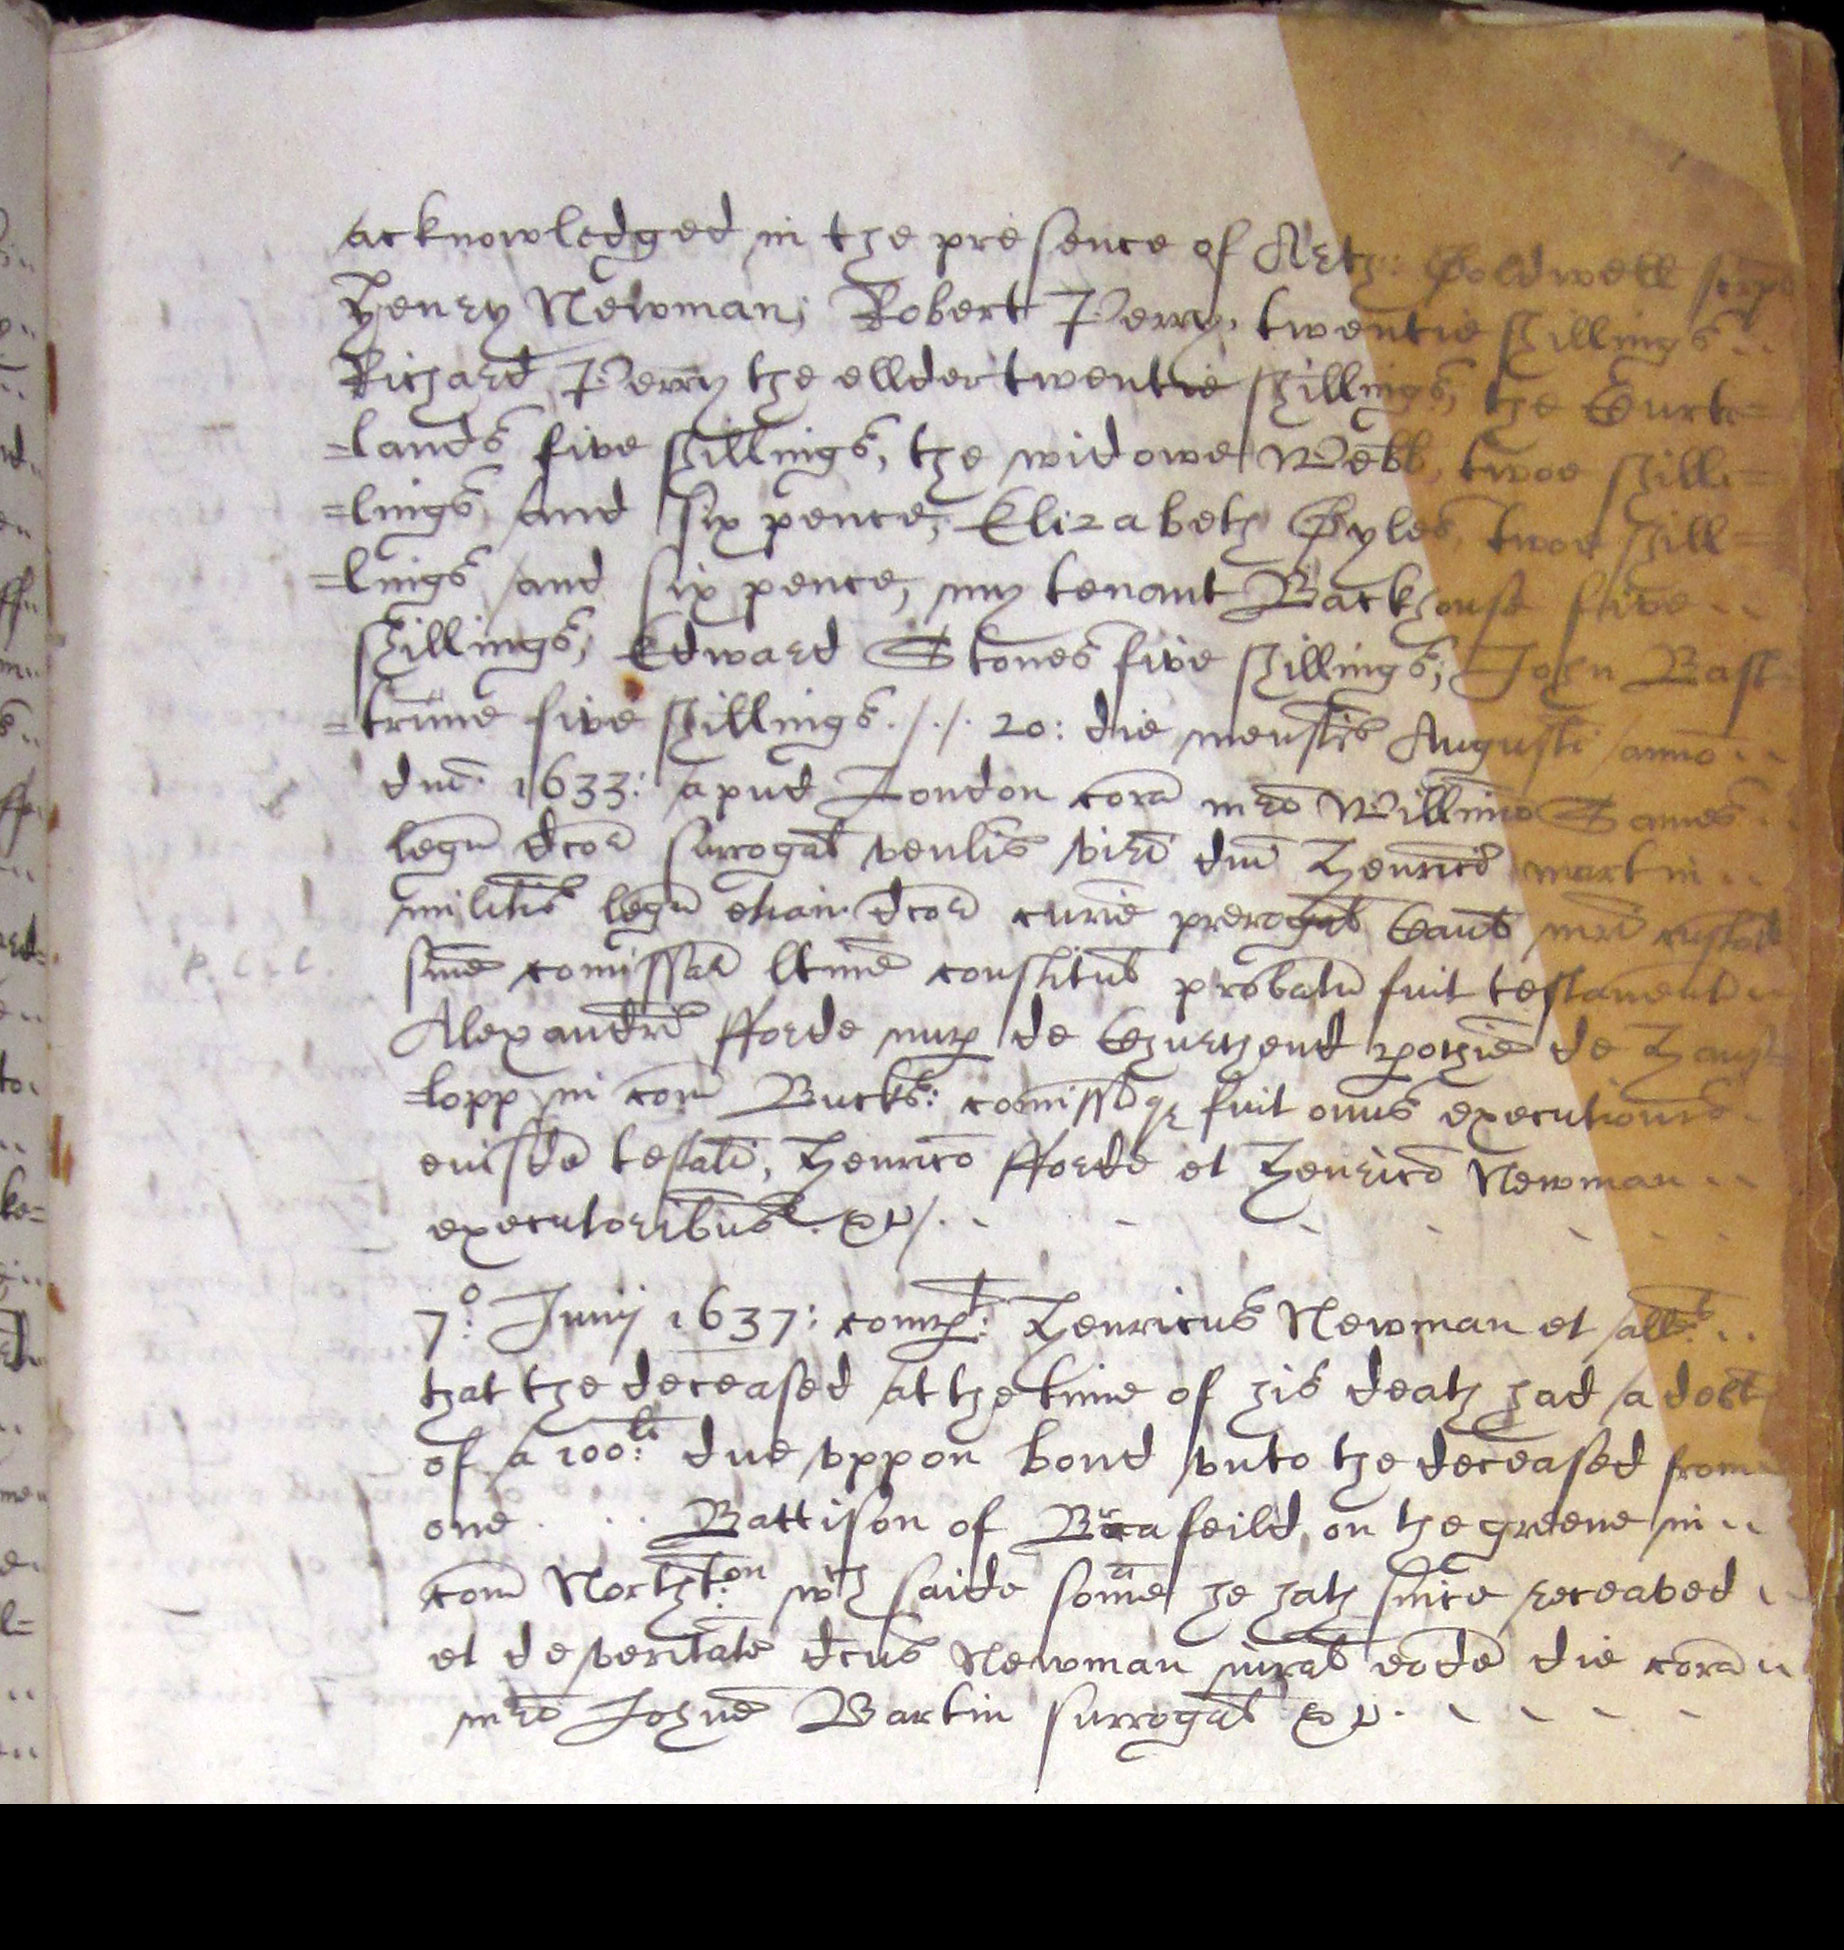 acknowledged in the presence of Arth: Coldwell scrp
Henry Newman; Robert Perry, twentie shillings ..
Richard Perry the ellder twentie shillings, the Curte=
=lands five shillings, the widowe Webb, twoe shilli=
=lings and six pence, Elizabeth Gyles, twoe shill=
=lings and six pence, my tenant Backhouse five ..
shillings, Edward Stones five shillings; John Bast
=trūme five shillings ./././ 20: die mensis Augusti anno ..
dnī 1633: apud London corā mrō Willimo Sames ..
legū dcōr surrogat venlis viri dnī Henrici martin ..
militis legū etiam dcōr curie prerogat Cant mri custod
sive comissar ltime constitut probatū fuit testamentū ..
Alexandri fforde nup de Churchend pochie de Hans
=lopp in com Bucks: comissaq fuit onus executionis
eiusdē testati, Henrico fforde et Henrico Newman ..
executoribus. &c/. - - - - -
7º: Junij 1637: compt: Henricus Newman et allt: ..
that the deceased at the time of his death had a debt
of a 100:li due vppon bond vnto the deceased from
one . . . Battison of Brafeild on the greene in ..
com Northt:on wch saide some he hath since receaved
et de veritate dcus Newman jurat eodē die corā ..
mro Johue Bartin surrogat &c. - - - -
P. C. C.